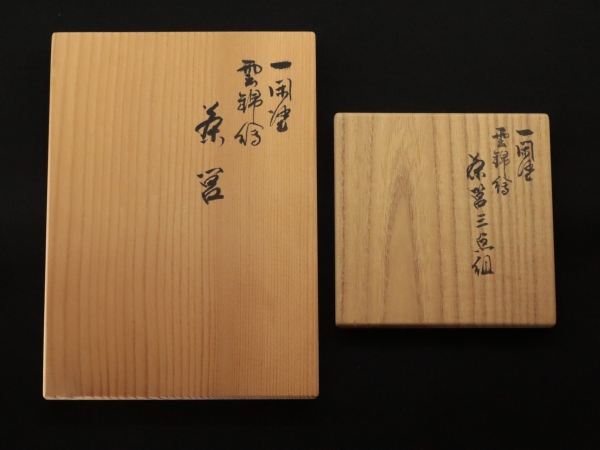 一閑塗
雲錦絵
茶筥
一閑塗
雲錦絵
茶筥三点組